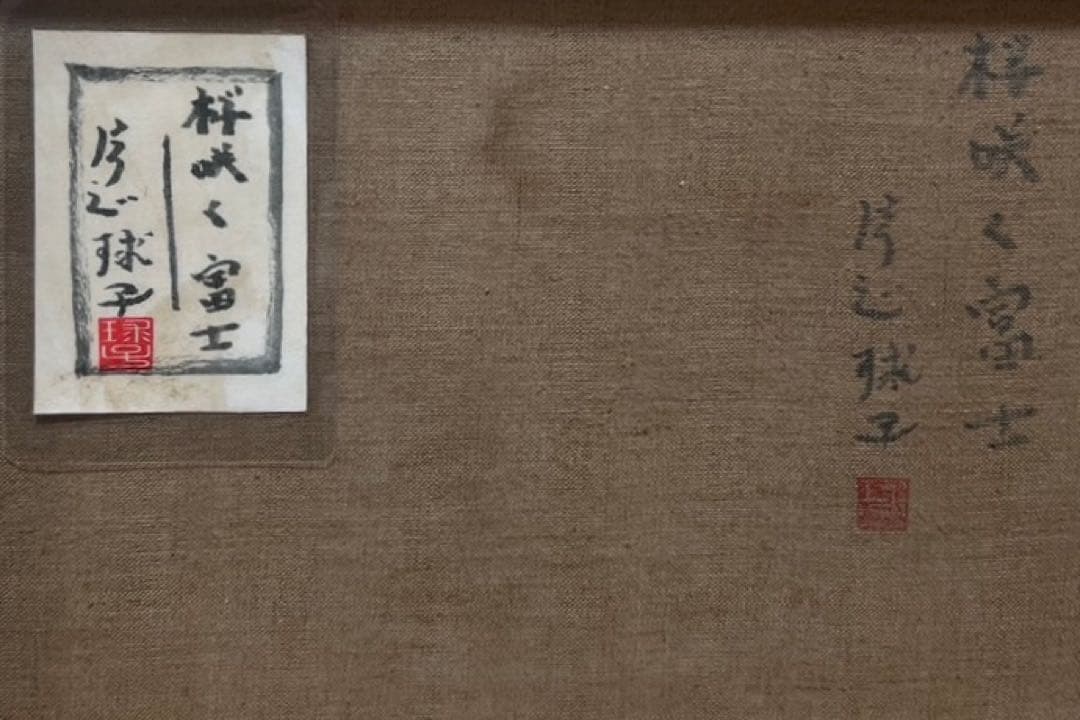 桜咲く富士
片岡球子
球子
桜咲く富士
片岡球子
球子